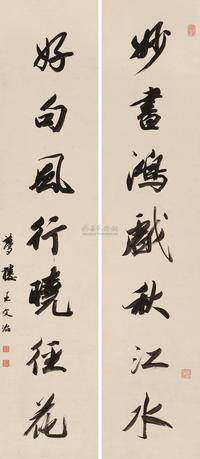 妙書鴻戲秋江水
好句風行曉徑花
夢樓王文治